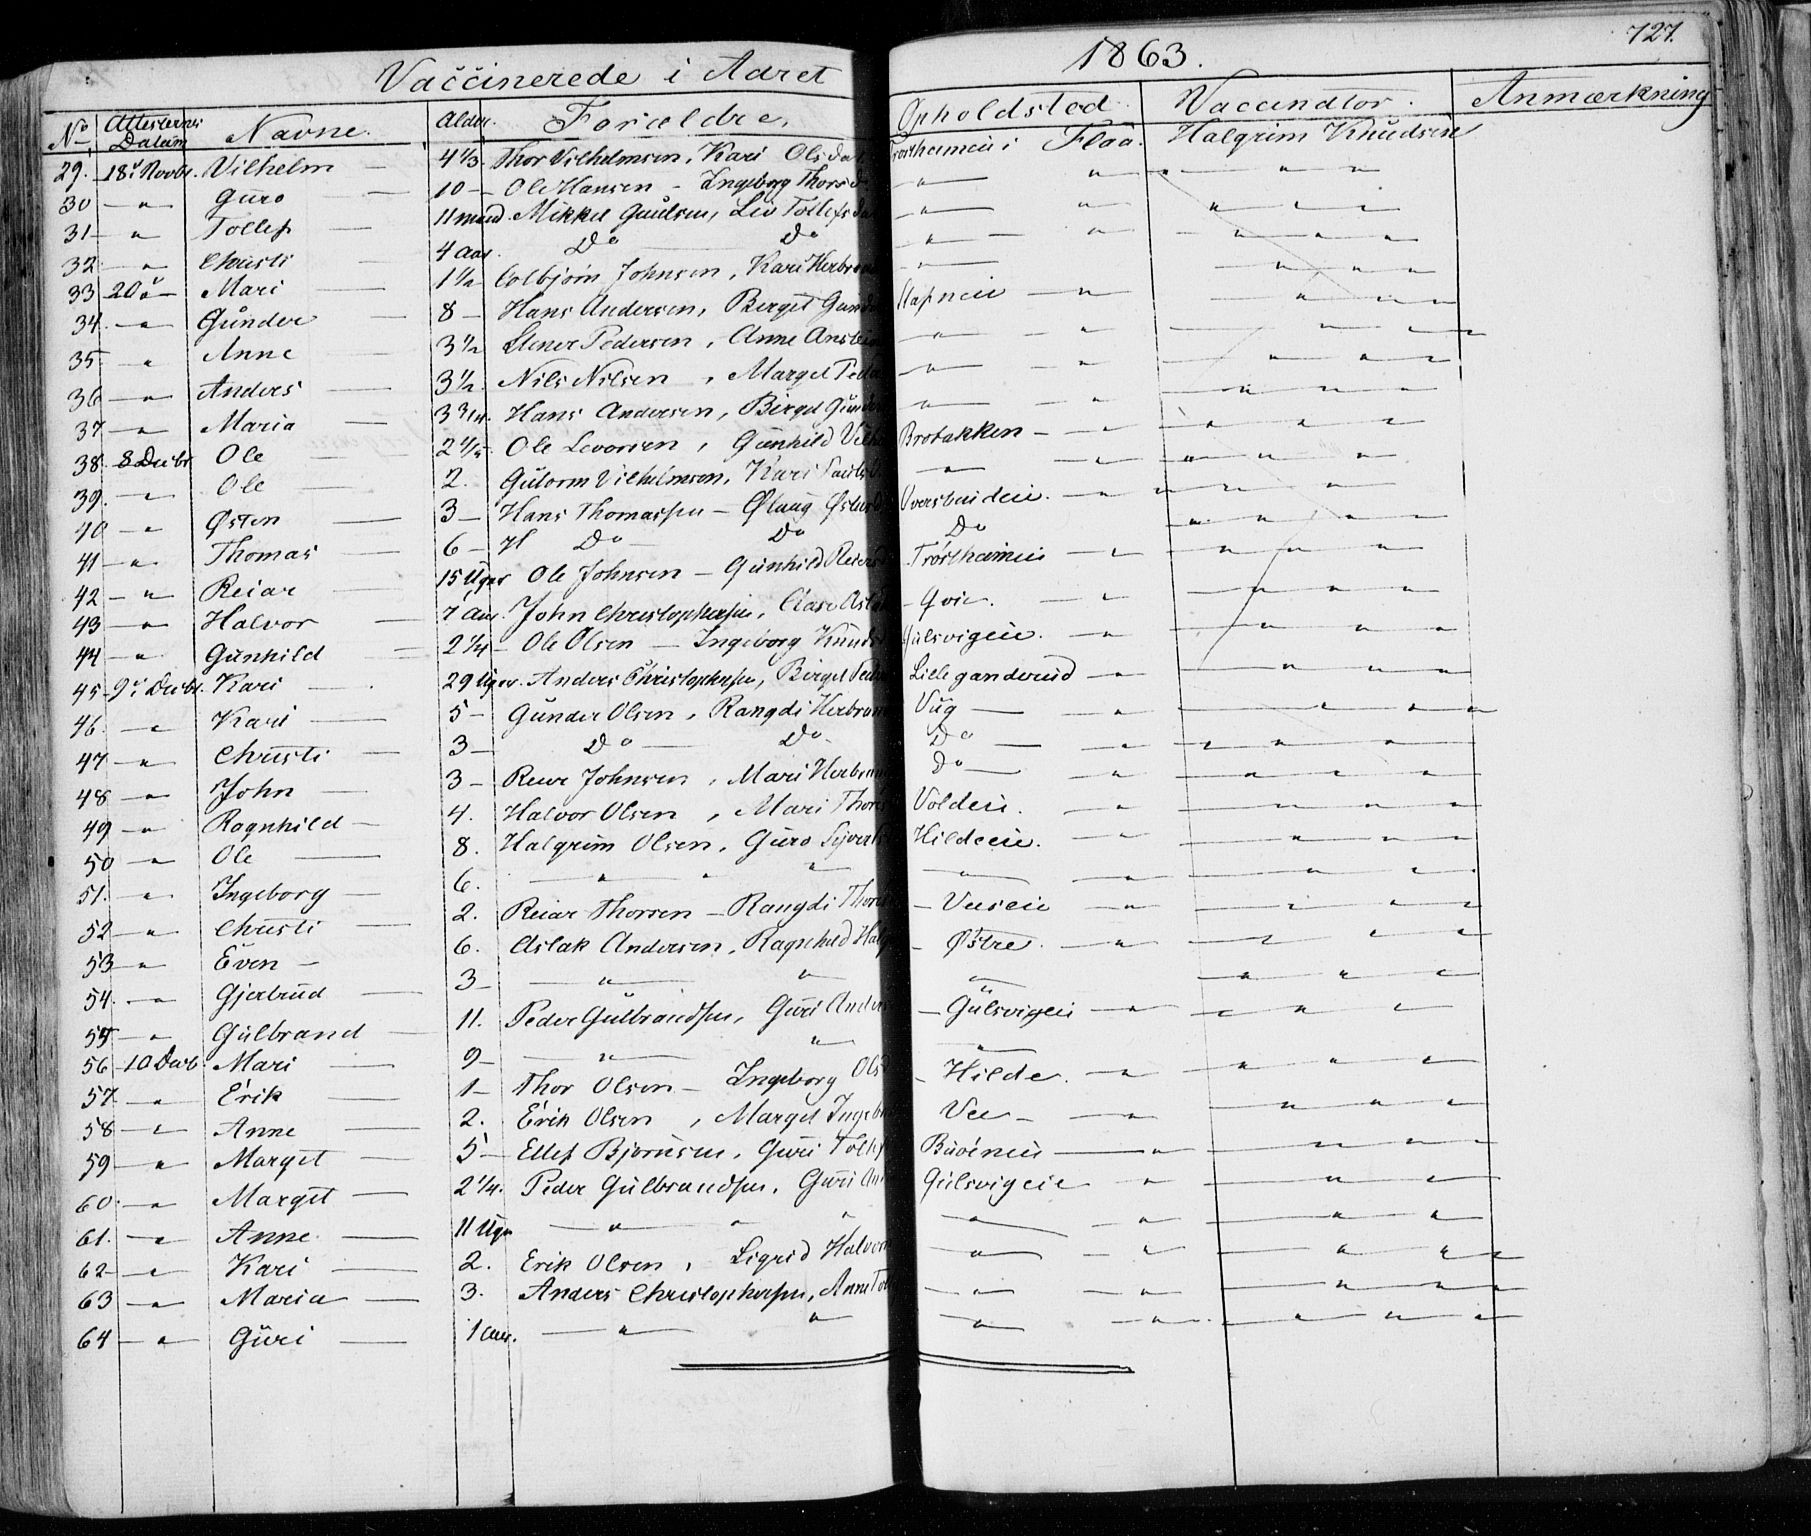 727.
Vaččinerede i Adret 1863.
No Attesternes Datum Navne. Alder. Forældre. Opholdsted. Vaccinatør. Anmærkning
29. 18de Novbr. Vilhelm — 4 1/3. Thor Vilhelmsen, Kari Olsdat Trostheimeie i Flaa. Halgrim Knudsen
30 — " Guro — 10 — Ole Hansen — Ingeborg Thorsd — " " " " "
31 — " Tollef — 11 maad. Mikkel Gaulsen, Liv Tollefsdat — " " " " "
32 — " Christi — 4 Aar. Do — Do — " " " " "
33 20de — Mari — 1 1/2 Colbjørn Johnsen, Kari Herbran — " " " "
34. — " Gunder — 8 — Hans Andersen, Berget Gund — " " "
35 — " Anne — 3 1/2 Stener Pedersen, Anne Anstein — " " " " "
36 — " Anders — 3 1/2. Nils Nilsen, Marget Peda — " " " " "
37 — " Maria — 3 3/4. Hans Andersen, Birget Gunde — " " " " "
38. 8 Decbr Ole — Ole Levorsen, Gunhild Vilh Brobakken — " " " "
39. — " Ole — 2. Gutorm Vilhelmsen, Kari Pauls — " " " " "
40 — " Østen — 3 — Hans Thomassen — Ølaug Østens — " " " "
41 — " Thomas — 6 — H Do — Do Do " " "
42 — " Reiar — 15 Uger Ole Johnsen — Gunhild Reiers Trostheimeie — " " " "
43 — " Halvor — 7 Aar. John Christophersen, — " " " "
44 — " Gunhild — 2 1/4 — Ole Olsen — Ingeborg Knuds Gulsvigeie. — " " " "
45 — 9de Decbr. Kari — 29 Uger. Anders Christophersen, Berget Peder Lille ganderud — " " " "
46. — " Kari — 5 — Gunder Olsen, Rangdi Herbran — " " " "
47 — " Christi — 3 — Do — Do Do — " " " "
48 — " John — 3 — Reier Johnsen, Mari Herbran Do — " " " "
49 — " Ragnhild — 4. Halvor Olsen, Mari Thores Voldeie. — " " " "
50 — " Ole — 8. Halgrim Olsen, Guro Syvert Hildeeie. — " " " "
51. — " Ingeborg — 6. — " " " — " " " " "
52 — " Christi — 2. Reiar Thorsen — Rangdi Thor — Veeseie — " " " "
53 — " Even — 6. Aslak Andersen, Ragnhild Halg — Østre. — " " " "
54. — " Gjertrud — 3 — " " — " " " "
55 — " Gulbrand — 11. Peder Gulbrandsen, Guri Anders — Gulsvigeie — " " " "
56 — 10 Decb. Mari — 9 — " " " " " "
57 — " Erik — 1 — Thor Olsen — Ingeborg Ols — Hilde. — " " " "
58 — " Anne — 2. Erik Olsen, Marget Ingeb Vee — " " " "
59 — " Marget — 5 — Ellef Bjørnsen, Guri Tollef — " " " "
60. — " Marget — 2 1/4. Peder Gulbrandsen, Guri An Gulsvigeie " " " "
61. — " Anne. — 11 Uger — " " " — " " " " "
62 — " Kari — 2. Erik Olsen, Sigrid Halvor — " " " " "
63 — " Maria — 3. Anders Christophersen, Anne Tol — " " " " "
64 — " Guri — 1 Aar. — " " " " " " "